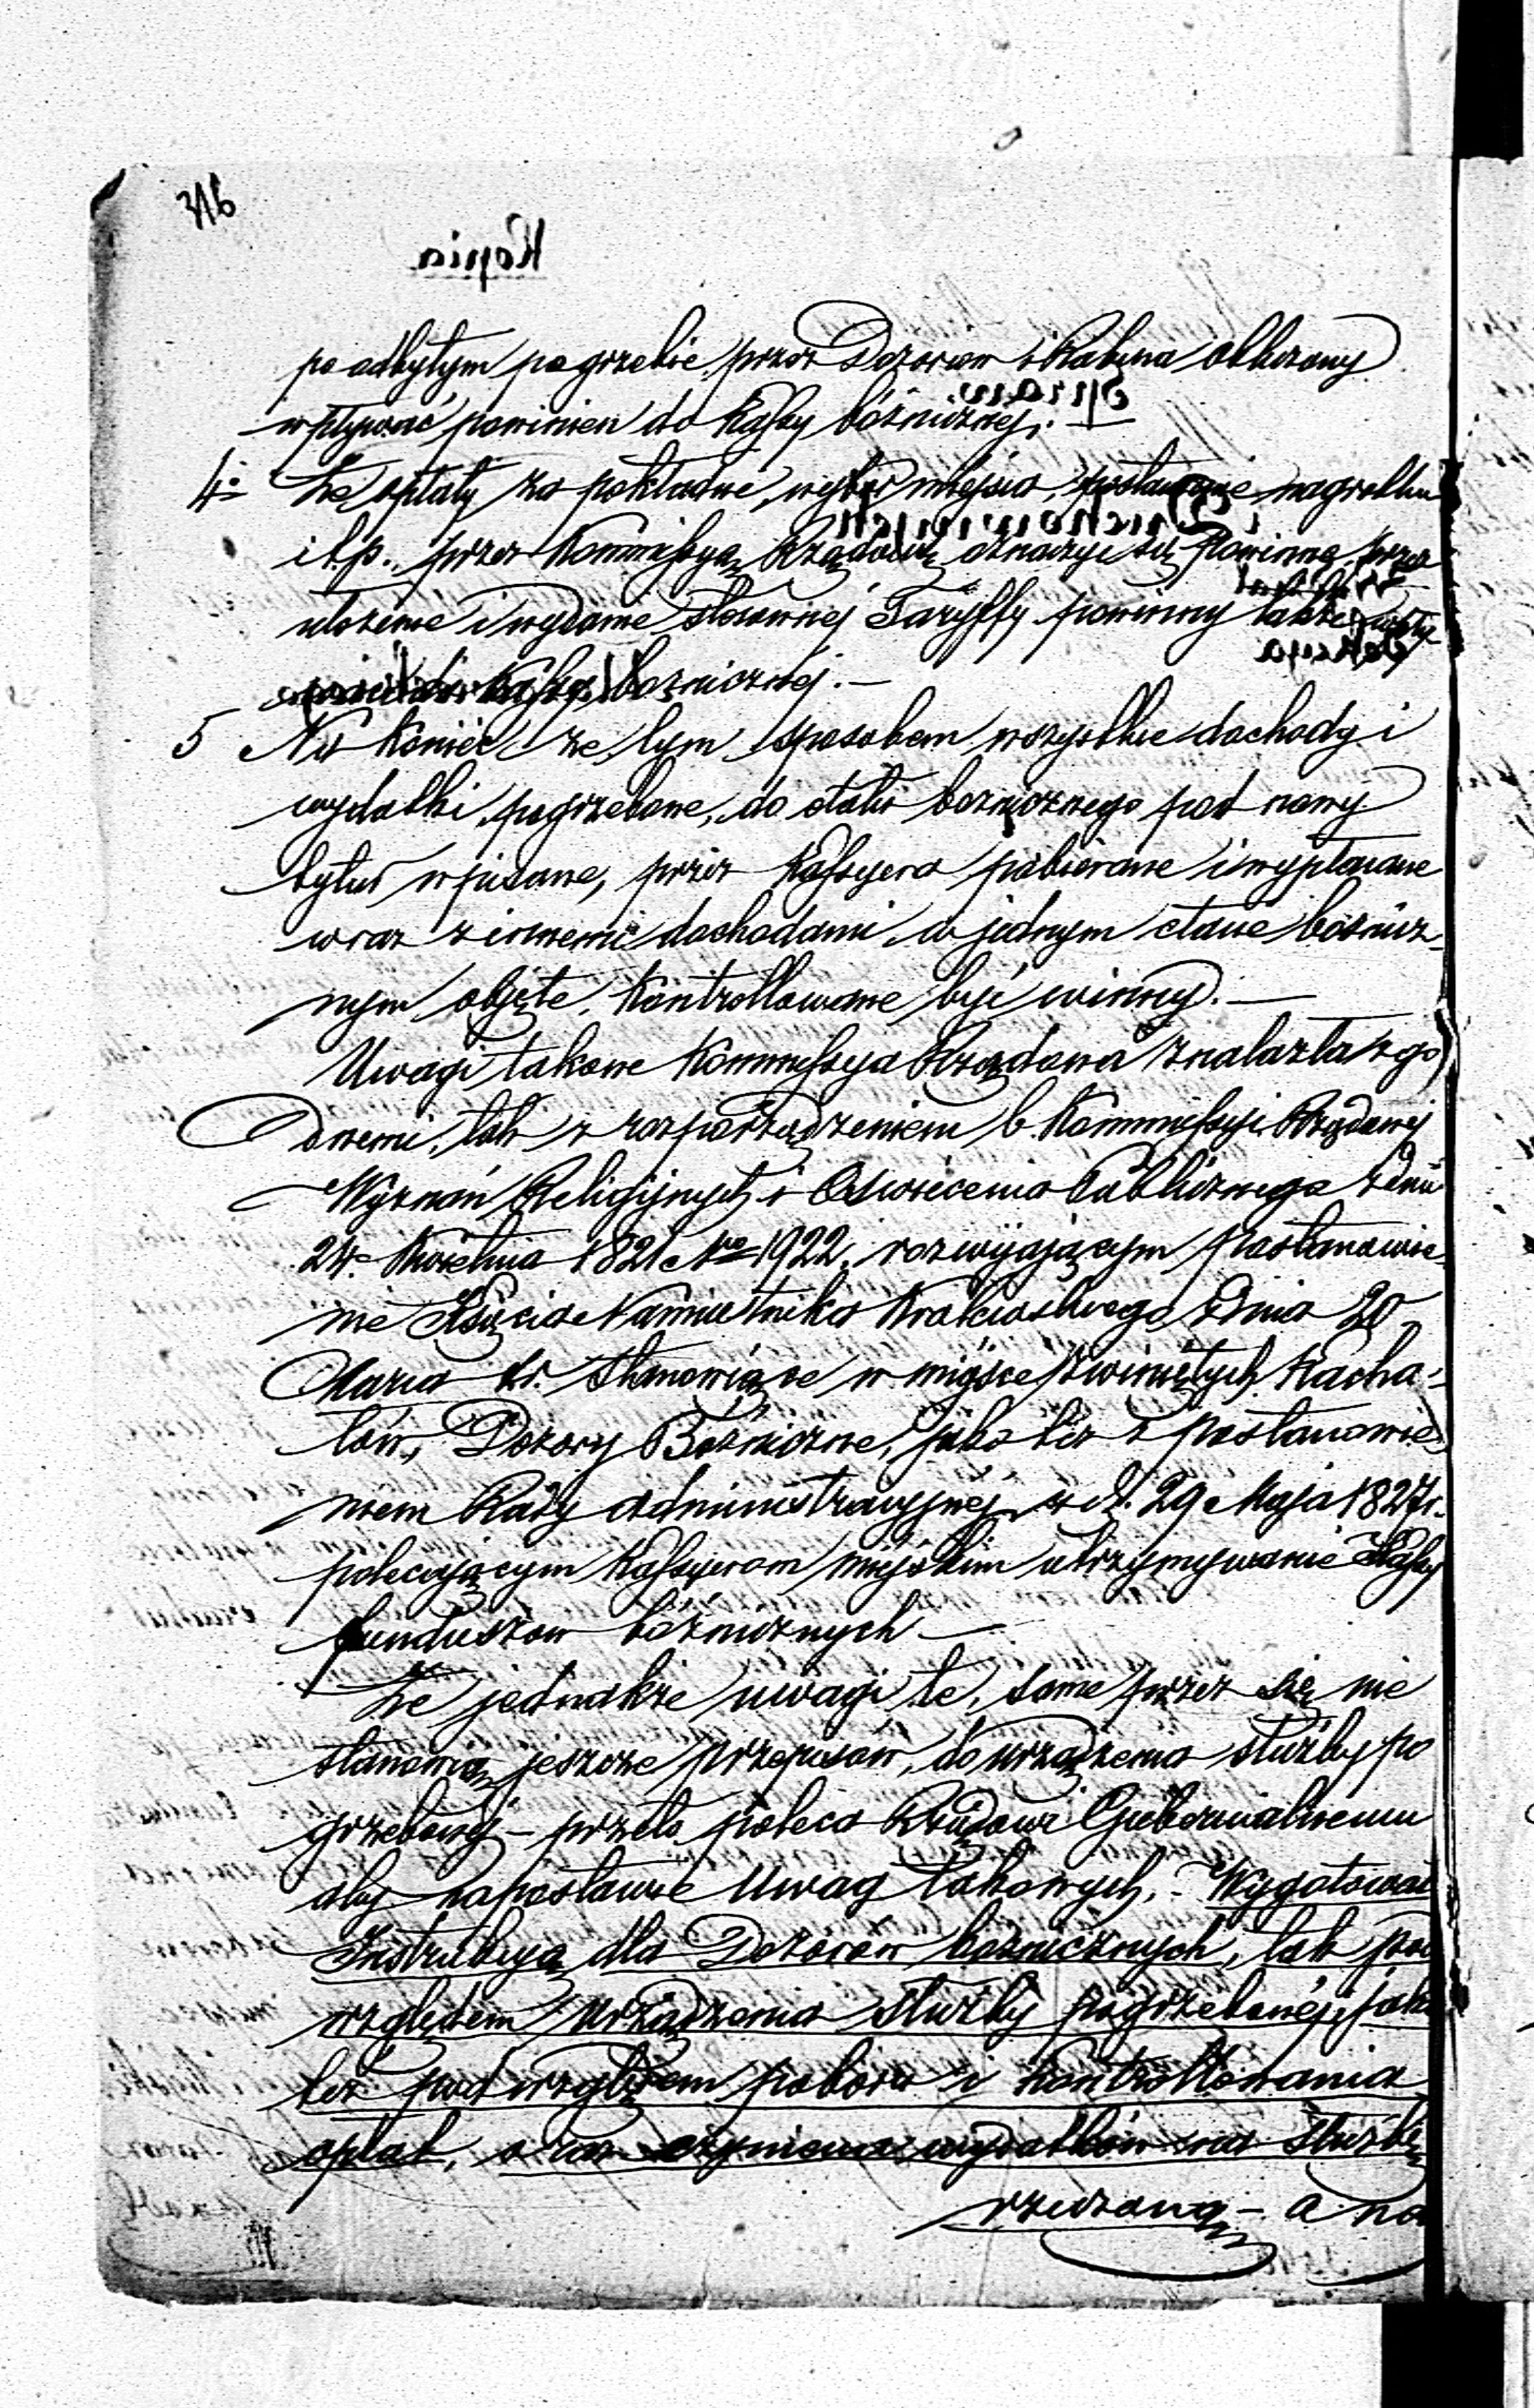 316
Kopia
po odbytym pogrzebie przez Dozorców i Rabina obliczony
wpływać powinien do Kassy bóźniczney. —
4o Że opłaty za pokładne, wybór miejsca, postawienie nagrobku
i t. p. przez Kommissyą Rządową oznaczyć się powinna przez
ułożenie i wydanie stosownéj Taryffy powinny także wpły
do Kassy boznicznej. —
5 Na koniec że tym sposobem wszystkie dochody i
wydatki pogrzebowe, do etatu boznicznego pod nowy
tytuł wpisane, przez Kassyera pobierane i wypłacane
wraz z innemi dochodami w jednym etacie boźnicz-
nym objęte, Kontrollowane być winny. —
Uwagi takowe Kommissya Rządowa znalazła zgo
dnemi, tak z rozporządzeniem b. Kommissyi Rządowej
Wyznań Religijnych i Oświecenia Publicznego z dnia
24. Kwietnia 1821 No 1922, rozwijającym postanowie
nie Xsięcia Namiestnika Królewskiego z dnia 20
Marca t.r. Stanowiące w miejsce zwiniętych Kacha-
łów, Dozory Bóźniczne, jako też z postanowie
niem Rady Administracyjnéj z d. 29 Maja 1827 r.
polecającym Kassyerom miejskim utrzymywanie Kassy
funduszow bóźnicznych —
Że jednakże uwagi te, same przez się nie
stanowią jeszcze przepisów, do urządzenia służby po
grzebowéj — przeto poleca Rządowi Gubernialnemu
aby na postawie Uwag takowych, - Wygotował
Instrukcyą dla Dozorów bożnicznych, tak pod
względem urządzenia służby pogrzebowéj, jako
też pod względem poboru i Kontrollowania
opłat, oraz czynienia wydatków na służbę
rzeczoną — a na